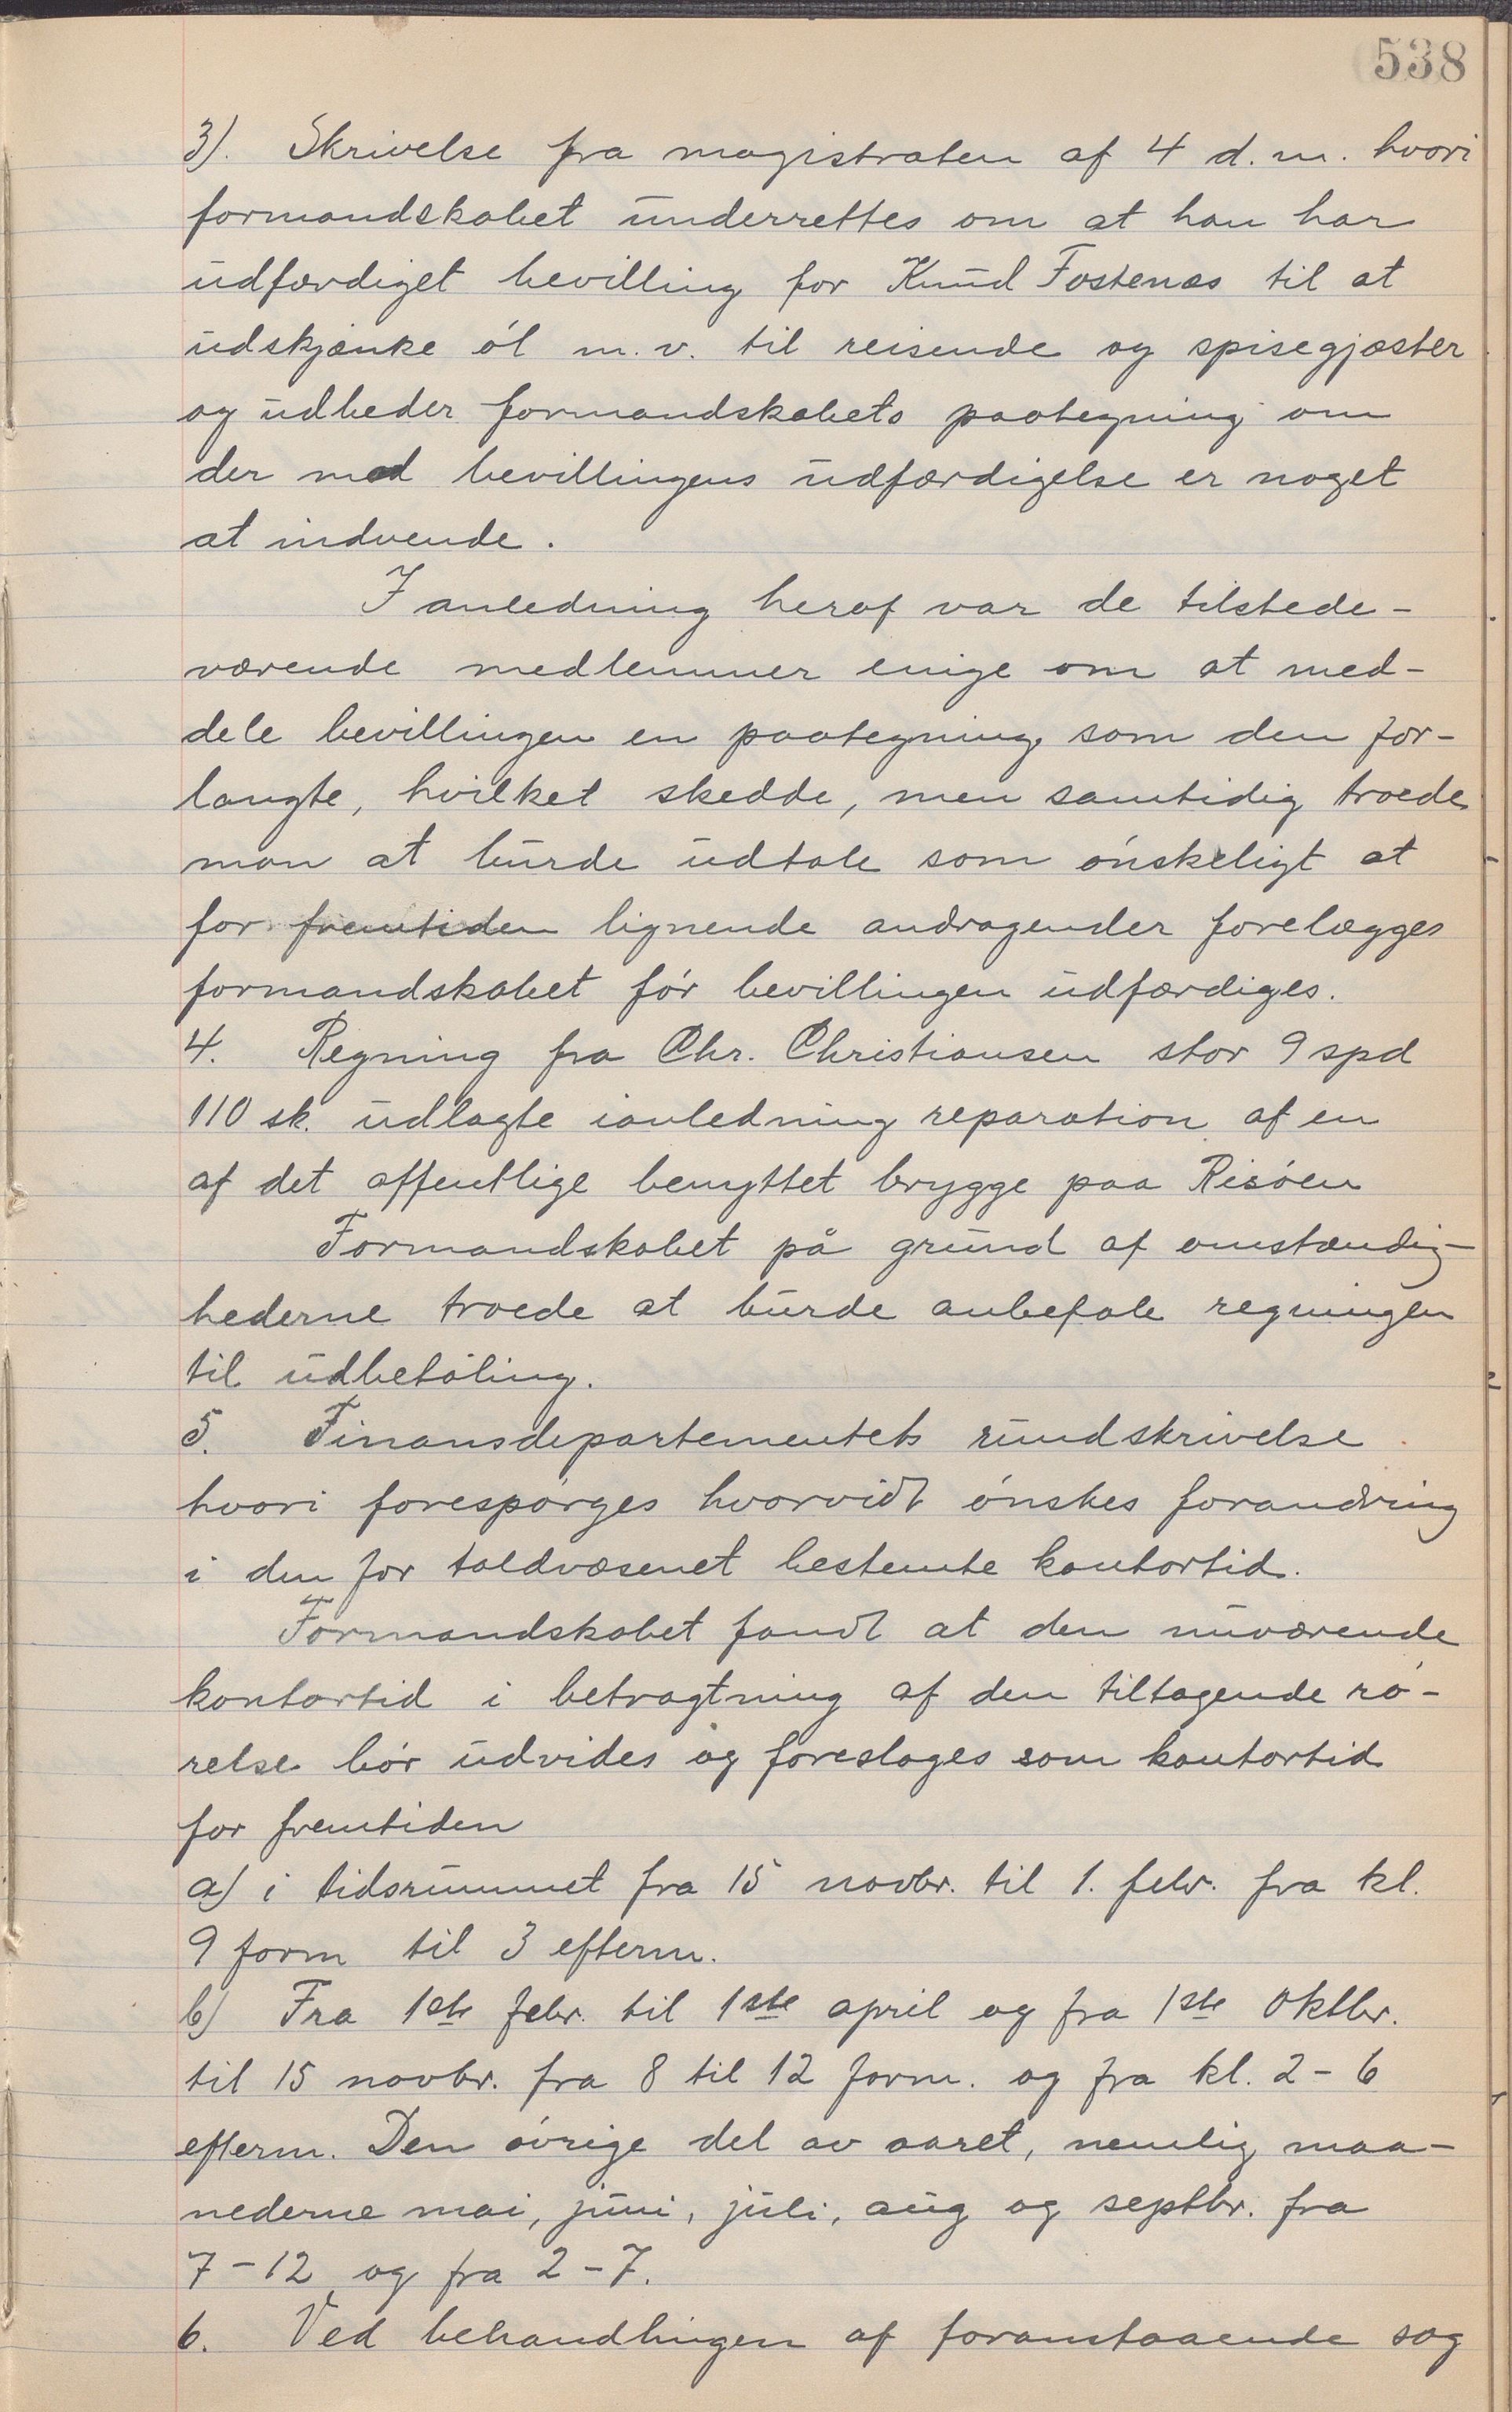 538
3). Skrivelse fra magistraten af 4 d. m. hvori
formandskabet underrettes om at han har
udfærdiget bevilling for Knud Fostenæs til at
udskjænke öl m. v. til reisende og spisegjæster
og udbeder formandskabets paategning om
der med bevillingens udfærdigelse er noget
at indvende.
I anledning heraf var de tilstede-
værende medlemmer enige om at med-
dele bevillingen en paategning som den for-
langte, hvilket skedde, men samtidig troede
man at burde udtale som önskeligt at
for fremtiden lignende andragender forelægges
formandskabet för bevillingen udfærdiges.
4. Regning fra Chr. Christiansen stor 9 spd
110 sk. udlagte ianledning reparation af en
af det offentlige benyttet brygge paa Risöen
Formandskabet på grund af omstændig-
hederne troede at burde anbefale regningen
til udbetaling.
5. Finansdepartementets rundskrivelse
hvori forespörges hvorvidt önskes forandring
i den for toldvæsenet bestemte kontortid.
Formandskabet fandt at den nuværende
kontortid i betragtning af den tiltagende rö-
relse bör udvides og foreslages som kontortid
for fremtiden
a) i tidsrummet fra 15 novbr. til 1. febr. fra kl.
9 form til 3 efterm.
b) Fra 1ste febr. til 1ste april og fra 1ste oktbr.
til 15 novbr. fra 8 til 12 form. og fra kl. 2 - 6
efterm. Den övrige del av aaret, nemlig maa-
nederne mai, juni, juli, aug og septbr. fra
7 - 12 og fra 2 - 7.
6. Ved behandlingen af foranstaaende sag